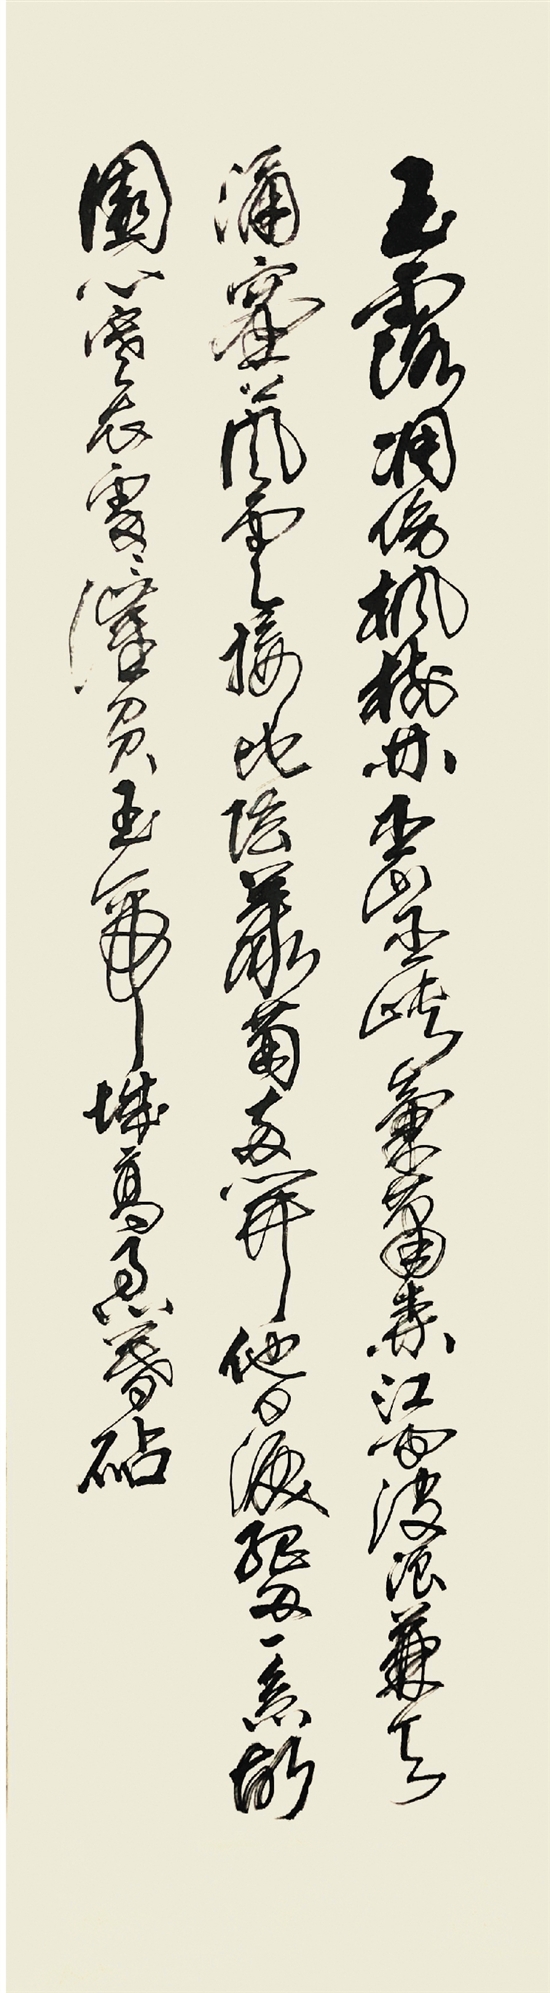 玉露凋傷楓樹林巫山巫峽氣蕭森江間波浪兼天
涌塞風雲接地陰叢菊兩開他日淚孤舟一系故
園心寒衣處々催刀尺玉帝城高急暮砧